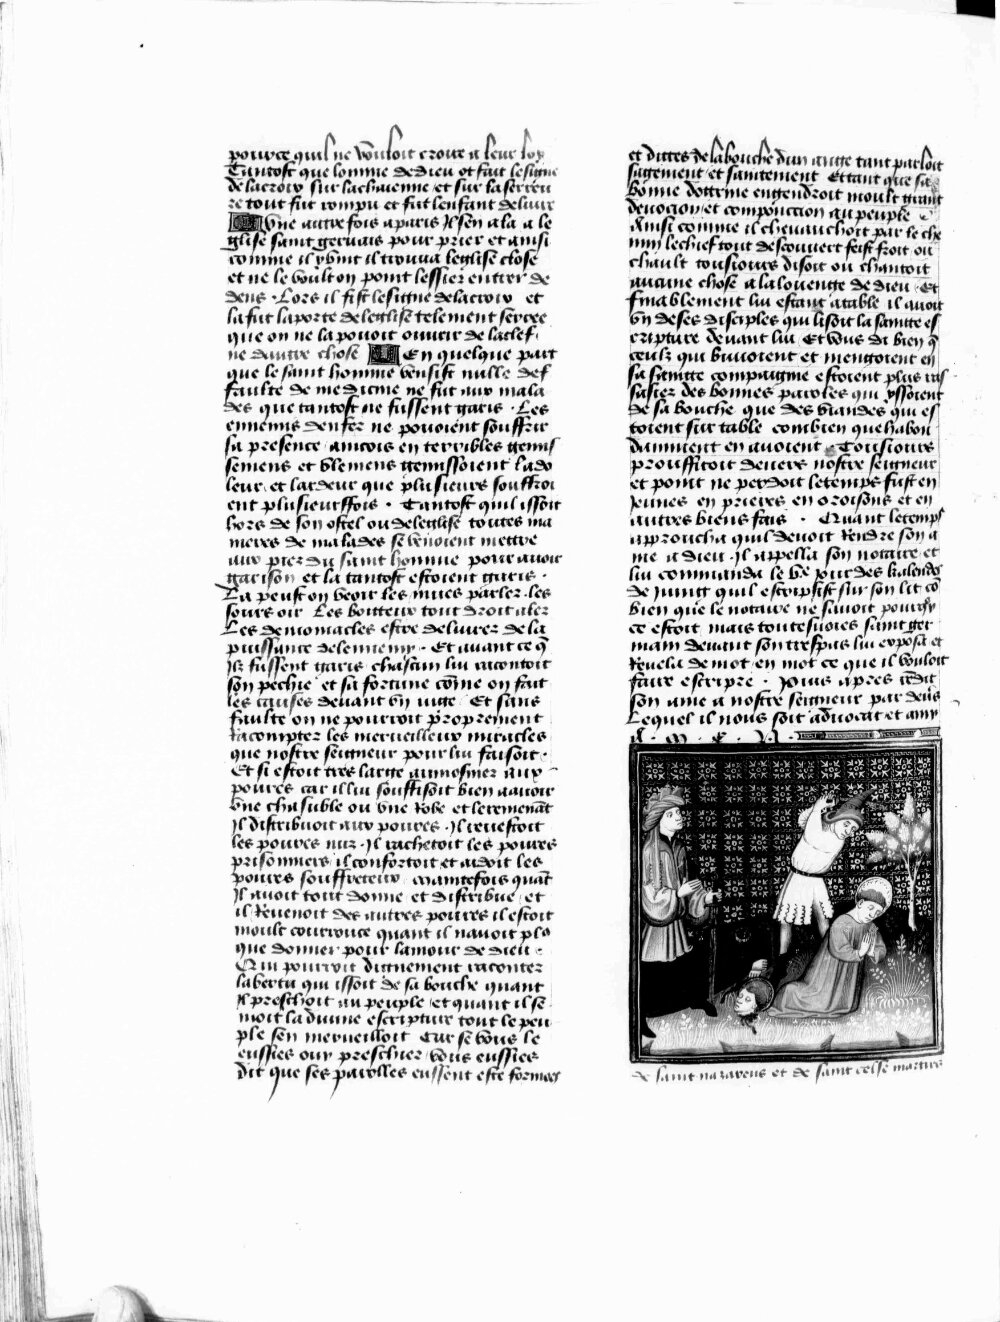 pource quil ne vouloit croire a leur loy
Tantost que lomme de dieu ot fait le signe
de la croix sur la chaienne et sur la serreu
re tout fut rompu et fut lenfant deliure
Vne autre fois a paris Il sen ala a le
glise saint geruais pour prier et ainsi
comme il y vint il trouua leglise close
et ne le voult on point lessier entrer de
dens . Lors il fist le signe de la croix et
la fut la porte de leglise telement serree
que on ne la pouoit ouurir de la clef
ne dautre chose En quelque part
que le saint homme venist nulle def
faulte de medicine ne fut aux mala
des que tantost ne fussent garis . Les
ennemis denfer ne pouoient souffrir
sa presence aincois en terribles gemis
semens et blemens gemissoient la do
leur et lardeur que plusieurs souffroi
ent plusieurffois . Tantost quil issoit
hors de son ostel ou de leglise toutes ma
nieres de malades se venoient mettre
aux piez du saint homme pour auoir
garison et la tantost estoient garis .
La peust on veoir les mues parler . les
sours oir Les boiteux tout droit aler
Les demoniacles estre deliurez de la
puissance de lennemy . Et auant ce q
Ilz fussent garis chascun lui racontoit
son pechie et sa fortune come on fait
les causes deuant vn iuge Et sans
faulte on ne pourroit proprement
racompter les merueilleux miracles
que nostre seigneur pour lui faisoit .
Et si estoit tres large aumosnier aux
poures car il lui souffisoit bien a auoir
vne chasuble ou vne robe et le remenat
Il distribuoit aux poures . Il reuestoit
les poures nuz . Il rachetoit les poures
prisonniers il confortoit et aidoit les
poures souffreteux maintefois quat
Il auoit tout donne et distribue et
il Reuenoit des autres poures il estoit
moult courrouce quant il nauoit plo
que donner pour lamour de dieu .
Qui pourroit dignement raconter
la vertu qui issoit de sa bouche quant
Il preschoit au peuple et quant il se
moit la diuine escripture tout le peu
ple sen merueilloit Car se vous le
eussies ouy preschier vous eussies
dit que ses parolles eussent este formees
et dittes de la bouche dun ange tant parloit
sagement et saintement Et tant que sa
bonne doctrine engendroit moult grant
deuocion et compunction au peuple
Ainsi comme il cheuauchoit par le che
min le chief tout descouuert feist froit ou
chault tousiours disoit ou chantoit
aucune chose a la louenge de dieu . Et
finablement lui estant a table il auoit
vn de ses disciples qui lisoit la sainte es
cripture deuant lui Et vous di bien q
ceulz qui buuoient et mengoient en
sa sainte compaignie estoient plus ras
sasiez des bonnes paroles qui yssoient
de sa bouche que des viandes qui es
toient sur table combien que habon
damment en auoient . Tousiours
prouffitoit deuers nostre seigneur
et point ne perdoit le temps fust en
Jeunes en prieres en oroisons et en
autres biens fais . Quant le temps
approucha quil deuoit Rendre son a
me a dieu . Il appella son notaire et
lui commanda le vᵉ jour des kalendes
de Juing quil escripsist sur son lit co
bien que le notaire ne sauoit pourqy
ce estoit mais toutesuoies saint ger
main deuant son trespas lui exposa et
Reuela de mot en mot ce que il vouloit
faire escripre . Puis apres redit
son ame a nostre seigneur par deus
Lequel il nous soit aduocat et amy
de saint nazareus et de saint celse martirs